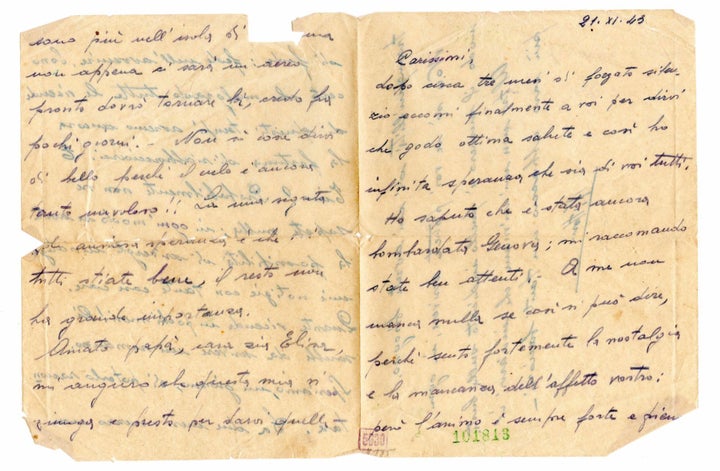 sono più nell'isola di una
non appena ci sarà un aereo
pronto dovrò tornare là, credo fra
pochi giorni. - Non vi cose dirvi
di bello perché il cielo è ancora
tanto nuvoloso!! La mia segreta
ed unica speranza è che
tutti stiate bene, il resto non
ha grande importanza.
Amato papà, cara zia Elisa,
mi auguro che questa mia vi
giunga e presto per darvi quella
21.XI.43
Carissimi,
dopo circa tre mesi di forzato silen
zio eccomi finalmente a voi per dirvi
che godo ottima salute e così ho
infinita speranza che sia di voi tutti.
Ho saputo che è stata ancora
bombardata Genova; mi raccomando
state ben attenti. A me non
manca nulla se così si può dire,
perché sento fortemente la nostalgia
e la mancanza dell'affetto vostro;
però l'animo è sempre forte e pien
101813